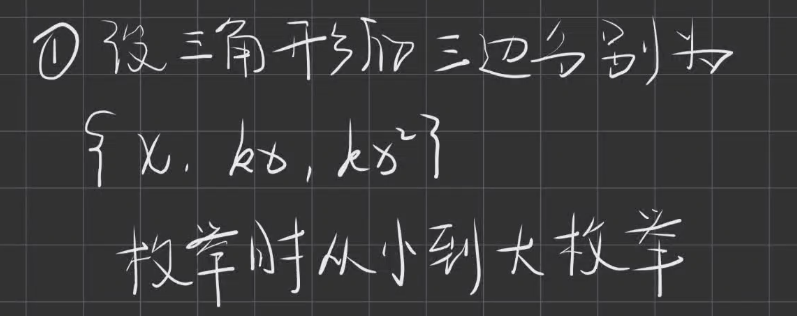 ① 设三角形的三边分别为
{ x, kx, kx² }
枚举时从小到大枚举